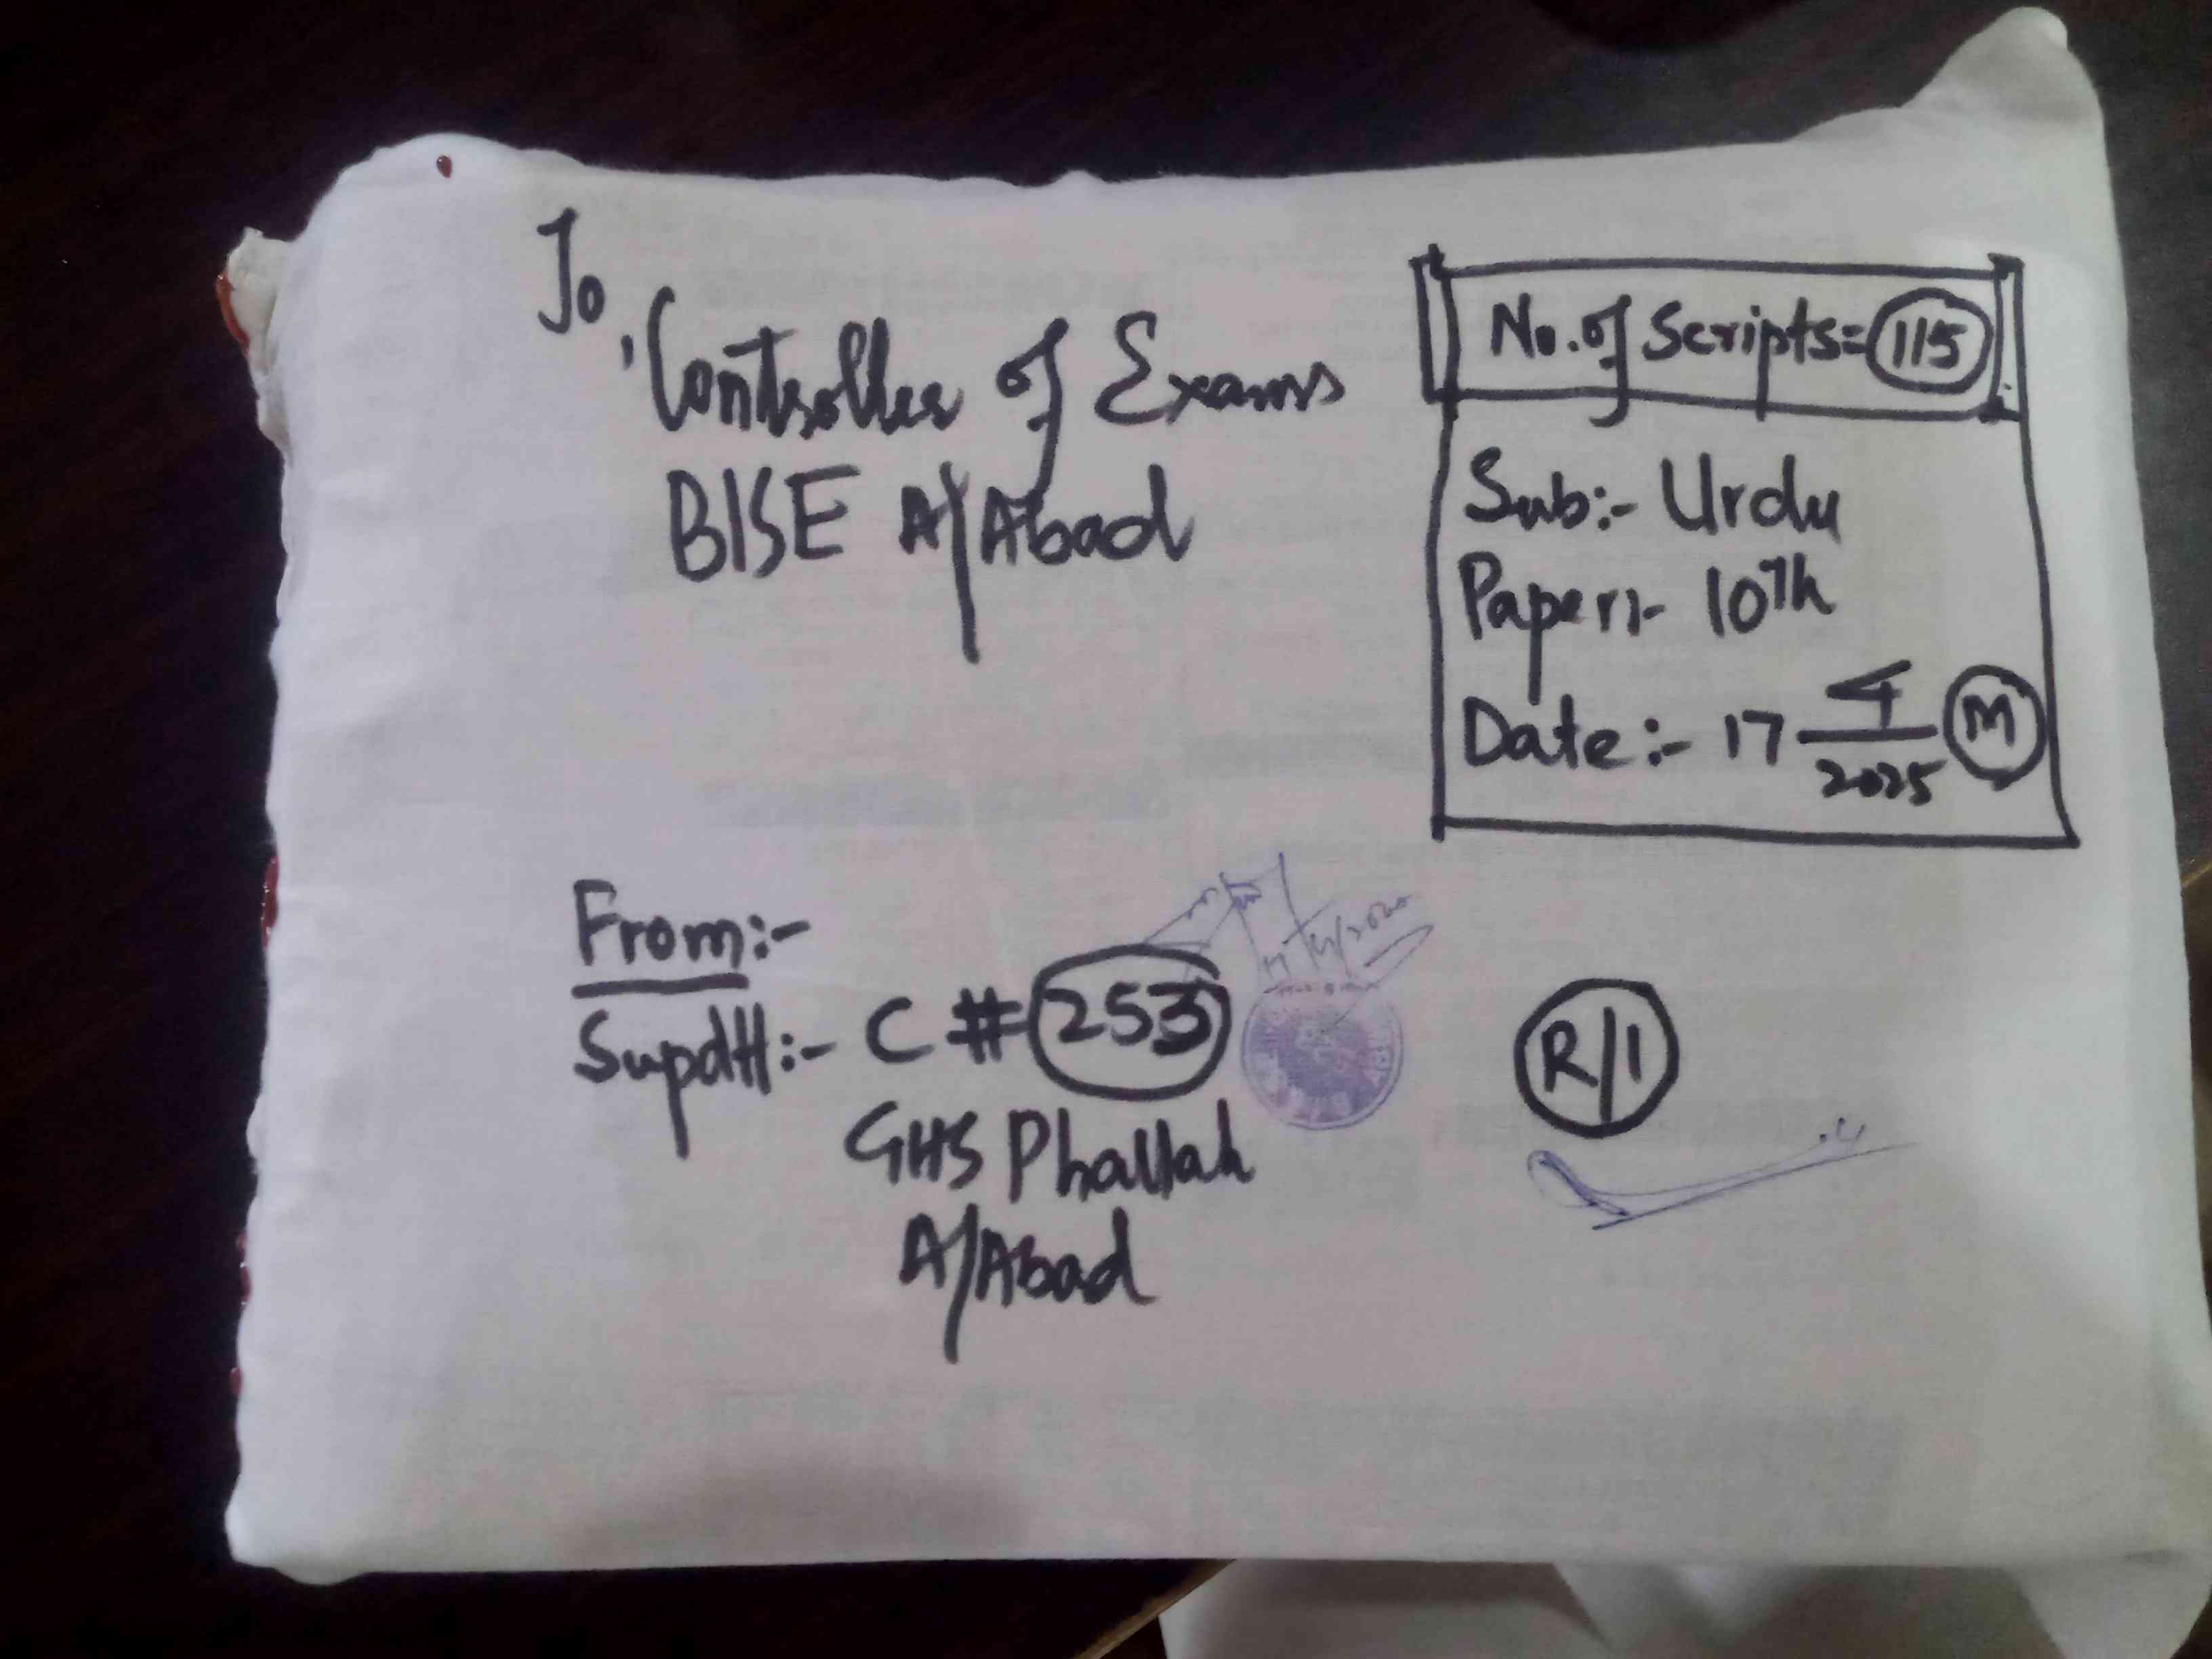 To,
Controller of Exams
BISE A/Abad
No. of Scripts = 115
Sub:- Urdu
Paper:- 10th
Date:- 17 4/2025 M
From:-
Supdtt:- C # 253
GHS Phallah
A/Abad
R/1